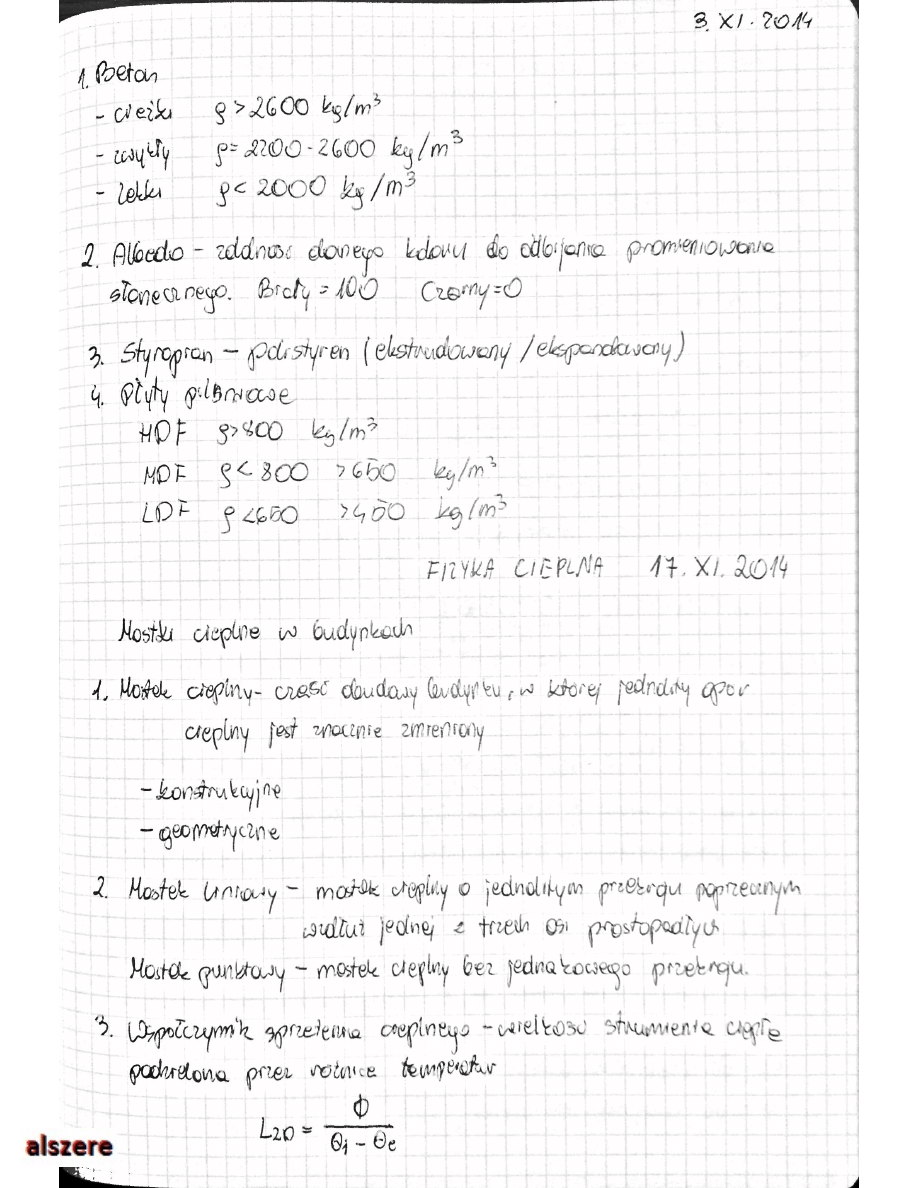 3. XI. 2014
1. Beton
- ciężki ρ > 2600 kg/m³
- zwykły ρ = 2200 - 2600 kg/m³
- lekki ρ < 2000 kg/m³
2. Albedo - zdolność danego koloru do odbijania promieniowania
słonecznego. Biały = 100 Czarny = 0
3. Styropian - polistyren (ekstrudowany / ekspandowany)
4. Płyty pilśniowe
HDF ρ > 800 kg/m³
MDF ρ < 800 > 650 kg/m³
LDF ρ < 650 > 450 kg/m³
FIZYKA CIEPLNA 17. XI. 2014
Mostki cieplne w budynkach
1. Mostek cieplny - część obudowy budynku, w której jednolity opór
cieplny jest znacznie zmieniony
- konstrukcyjne
- geometryczne
2. Mostek liniowy - mostek cieplny o jednolitym przekroju poprzecznym
wzdłuż jednej z trzech osi prostopadłych
Mostek punktowy - mostek cieplny bez jednakowego przekroju.
3. Współczynnik sprzężenia cieplnego - wielkość strumienia ciepła
podzielona przez różnicę temperatur
L2D = Φ / (Θi - Θe)
alszere